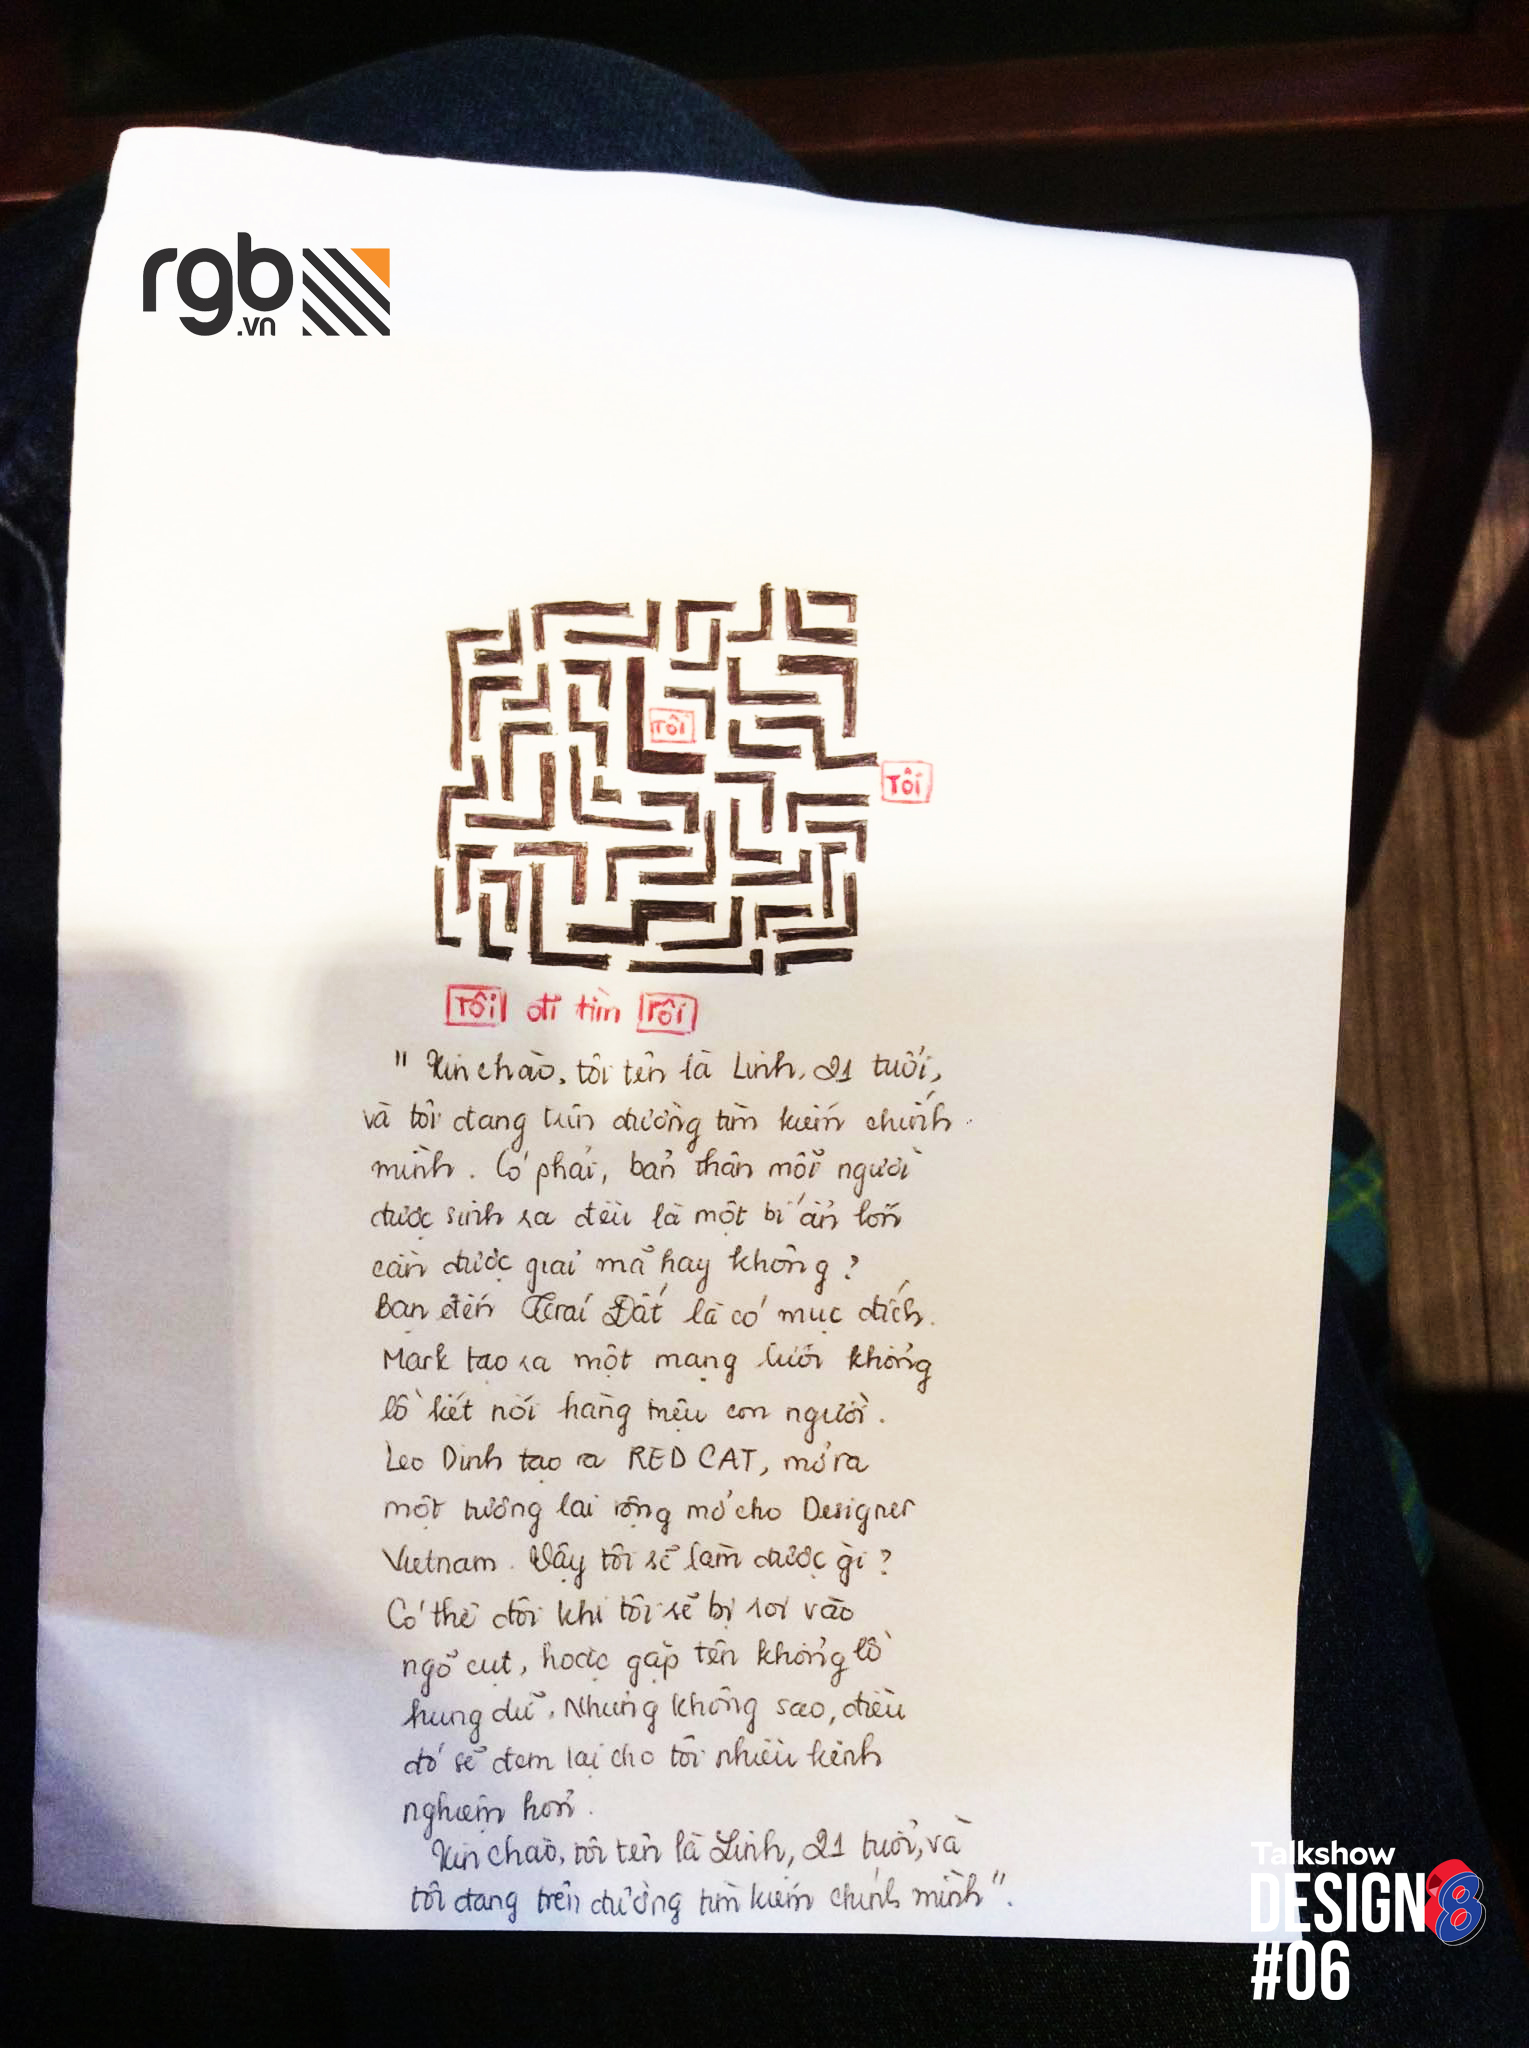 rgb
.vn
Tôi
Tôi
Tôi đi tìm Tôi
"Xin chào, tôi tên là Linh, 21 tuổi,
và tôi đang trên đường tìm kiếm chính
mình. Có phải, bản thân mỗi người
được sinh ra đều là một bí ẩn lớn
cần được giải mã hay không?
Bạn đến Trái Đất là có mục đích.
Mark tạo ra một mạng lưới khổng
lồ kết nối hàng triệu con người.
Leo Dinh tạo ra RED CAT, mở ra
một tương lai rộng mở cho Designer
Vietnam. Vậy tôi sẽ làm được gì?
Có thể đôi khi tôi sẽ bị rơi vào
ngõ cụt, hoặc gặp tên khổng lồ
hung dữ. Nhưng không sao, điều
đó sẽ đem lại cho tôi nhiều kinh
nghiệm hơn.
Xin chào, tôi tên là Linh, 21 tuổi, và
tôi đang trên đường tìm kiếm chính mình".
Talkshow
DESIGN8
#06